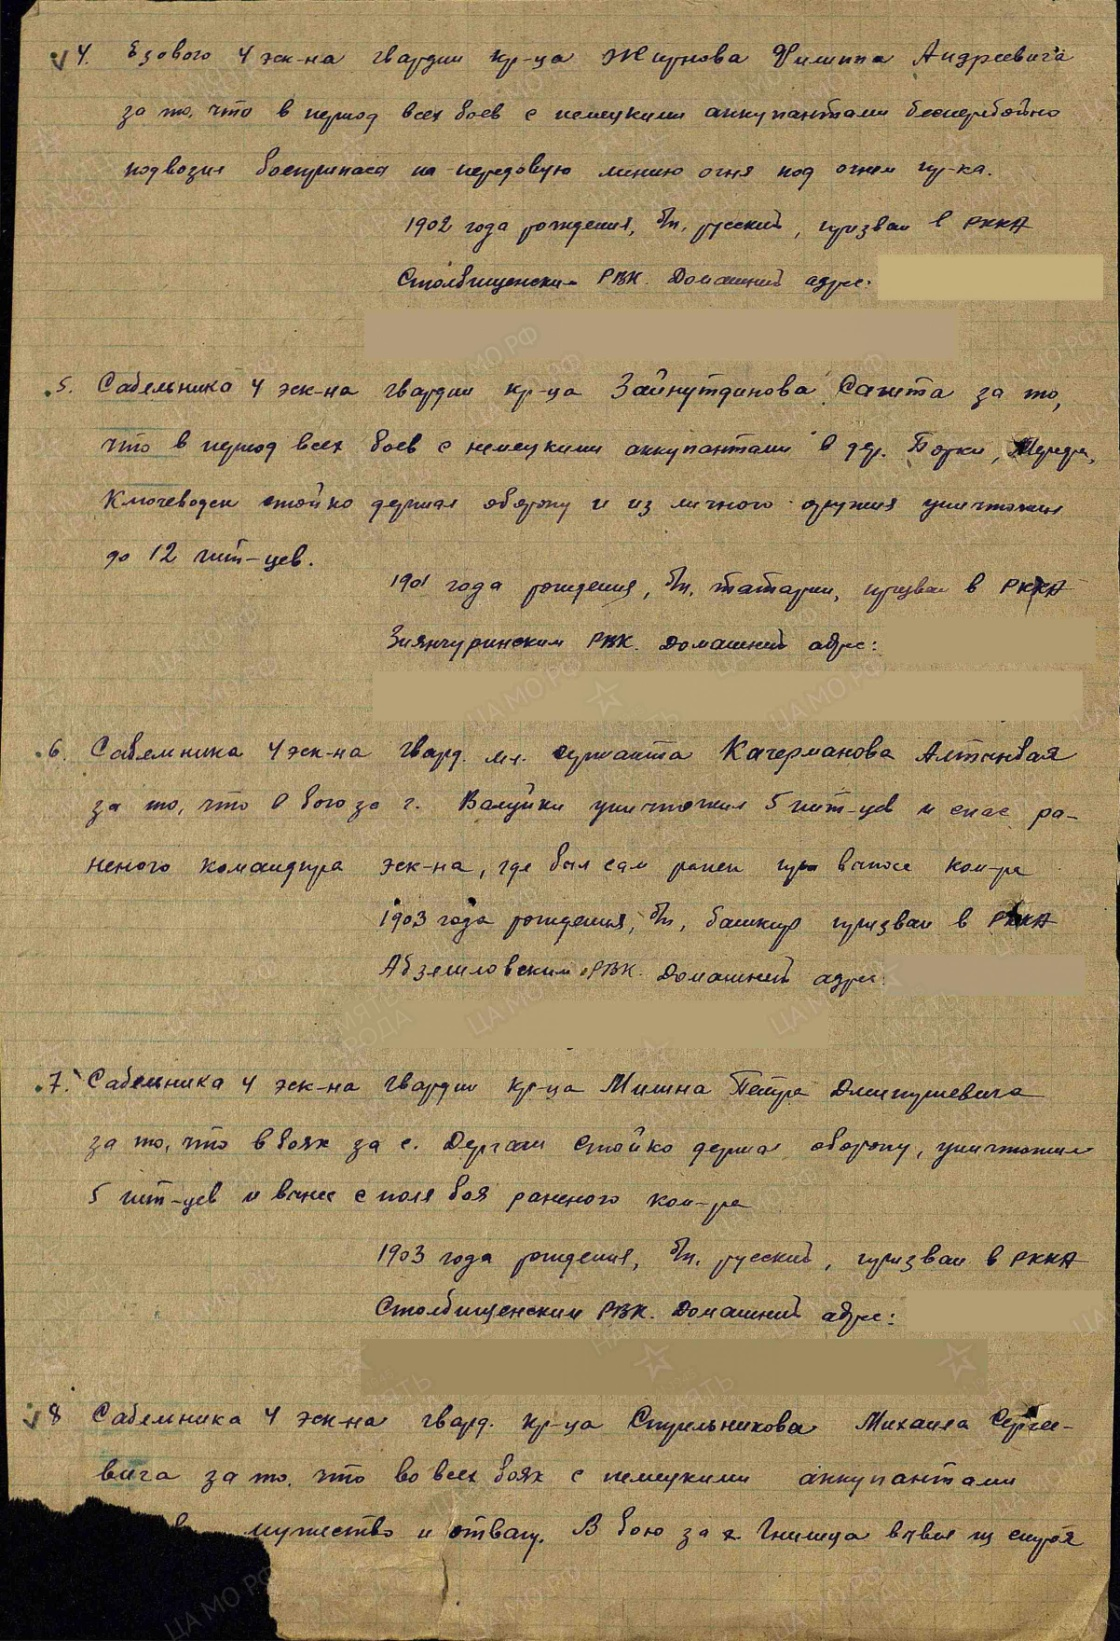 4. Ездового 4 эск-на гвардии кр-ца Жирнова Филиппа Андреевича
за то, что в период всех боев с немецкими аккупантами бесперебойно
подвозил боеприпасы на передовую линию огня под огнем пр-ка.
1902 года рождения, б/п, русский, призван в РККА
Столбищенским РВК. Домашний адрес:
5. Сабельника 4 эск-на гвардии кр-ца Зайнутдинова Сагита за то,
что в период всех боев с немецкими аккупантами в дер. Борки,
Ключеводск стойко держал оборону и из личного оружия уничтожил
до 12 гит-цев.
1901 года рождения, б/п, татарин, призван в РККА
Зиянчуринским РВК. Домашний адрес:
6. Сабельника 4 эск-на гвард. мл. сержанта Качерманова Алтынбая
за то, что в бою за г. Валуйки уничтожил 5 гит-цев и спас ра-
неного командира эск-на, где был сам ранен при выносе ком-ра
1903 года рождения, б/п, башкир призван в РККА
Абзелиловским РВК. Домашний адрес
7. Сабельника 4 эск-на гвардии кр-ца Милина Петра Дмитриевича
за то, что в боях за с. Дергачи стойко держал оборону, уничтожил
5 гит-цев и вынес с поля боя раненого ком-ра
1903 года рождения, б/п, русский, призван в РККА
Столбищенским РВК. Домашний адрес:
8 Сабельника 4 эск-на гвард. кр-ца Стрельникова Михаила Сергее-
вича за то, что во всех боях с немецкими аккупантами
мужество и отвагу. В бою за х. Гнилица вывел из строя